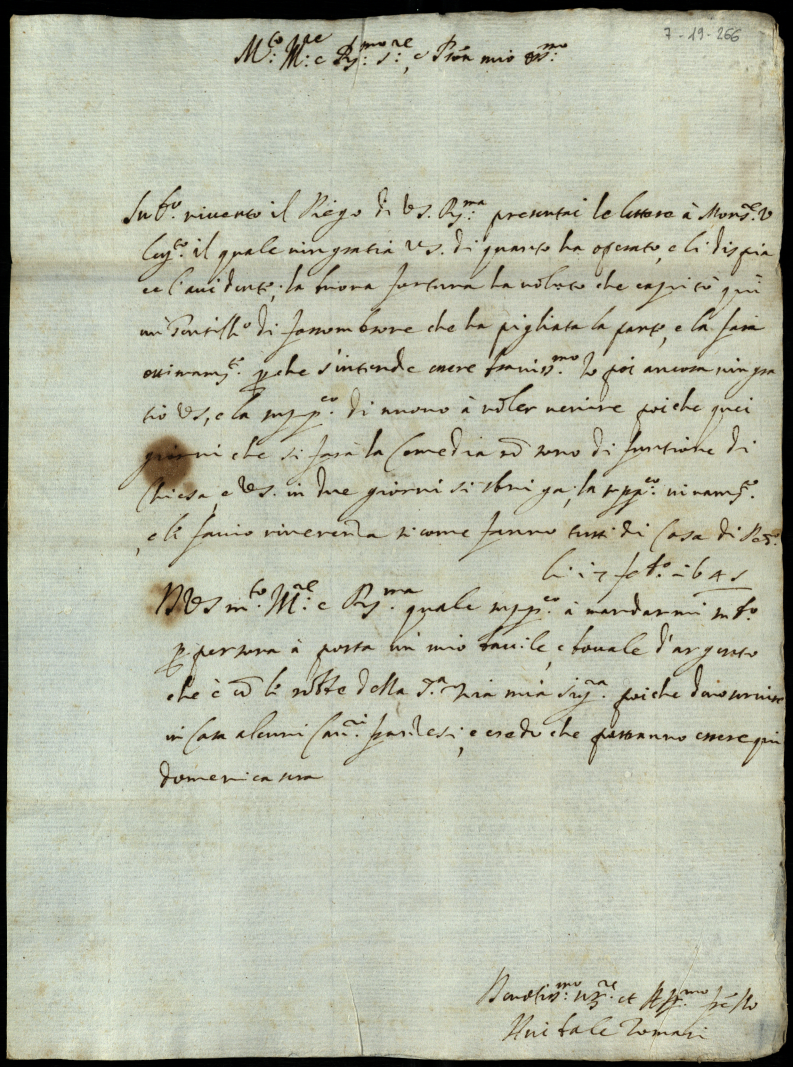 7-19-266
M.to Ill.re e R.mo s.re, e Pron mio oss.mo
Sub.to riceuto il Piego di VS. R.ma presentai le lettere à Mons.re V
leg.to il quale ringratia VS. di quanto ha operato, e li dispia
ce l'accidente; la buona fortuna ha voluto che capitò quì
un Gentilh.o di che ha pigliata la parte, e la farà
ottimam.te p che s'intende essere brauiss.mo Io poi ancora ringra
tio VS, e la supp.co di nuouo à voler venire poiche quei
giorni che si farà la Comedia nō sono di funtione di
Chiesa, e VS. in due giorni si sbriga; la supp.co viuam.te,
e li faccio riuerenza si come fanno tutti di Casa di
li 17 feb.o 1645
D VS m.to Ill.re e R.ma quale supp.co à mandarmi sub.o
p persona à posta un mio bacile, e bocale d'argento
che è cō le robbe della S.ra Zia mia Sig.ra poiche deuo seruire
in Casa alcuni Cau.ri, e credo che potranno essere qui
domenica sera
Deuotiss.mo ser.re et Aff.mo